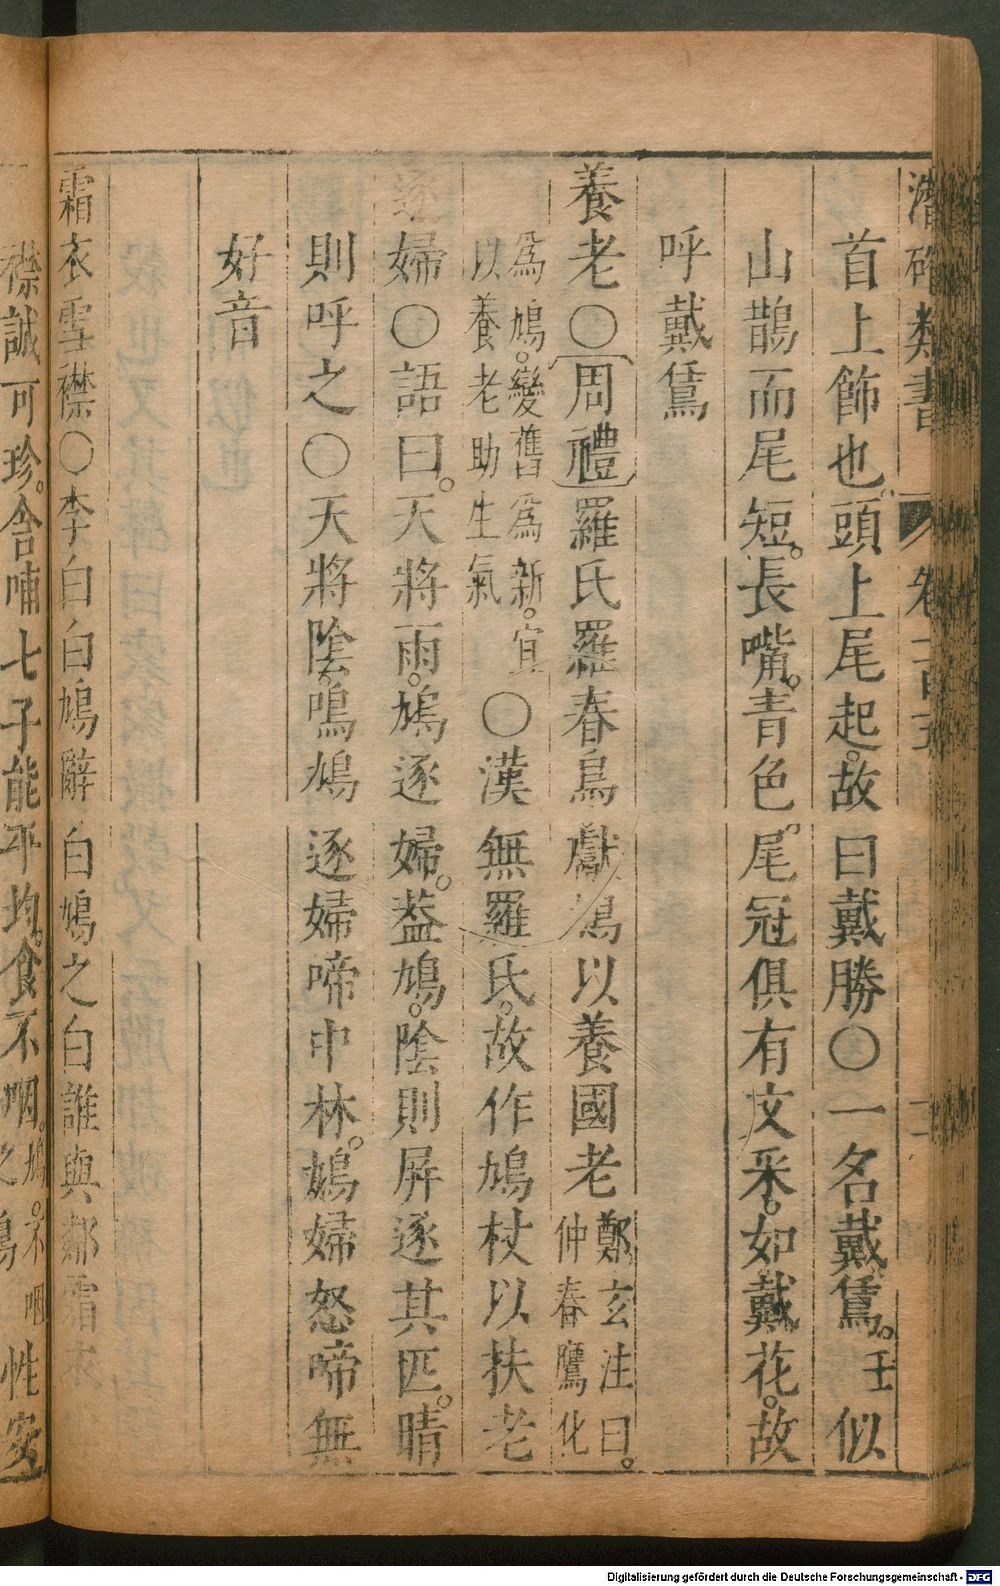 潛確類書 卷一百五
首上飾也頭上尾起故曰戴勝○一名戴鵀壬似
山鵲而尾短長嘴青色尾冠俱有文采如戴花故
呼戴鵀
養老○周禮羅氏羅春鳥獻鳩以養國老鄭玄注曰仲春鷹化
爲鳩變舊爲新宜以養老助生氣○漢無羅氏故作鳩杖以扶老
逐婦○語曰天將雨鳩逐婦葢鳩陰則屏逐其匹晴
則呼之○天將陰鳴鳩逐婦啼中林鳩婦怒啼無
好音
霜衣雪襟○李白白鳩辭白鳩之白誰與鄰霜衣
襟誠可珍含哺七子能平均食不咽鳩不咽性安
Digitalisierung gefördert durch die Deutsche Forschungsgemeinschaft - DFG